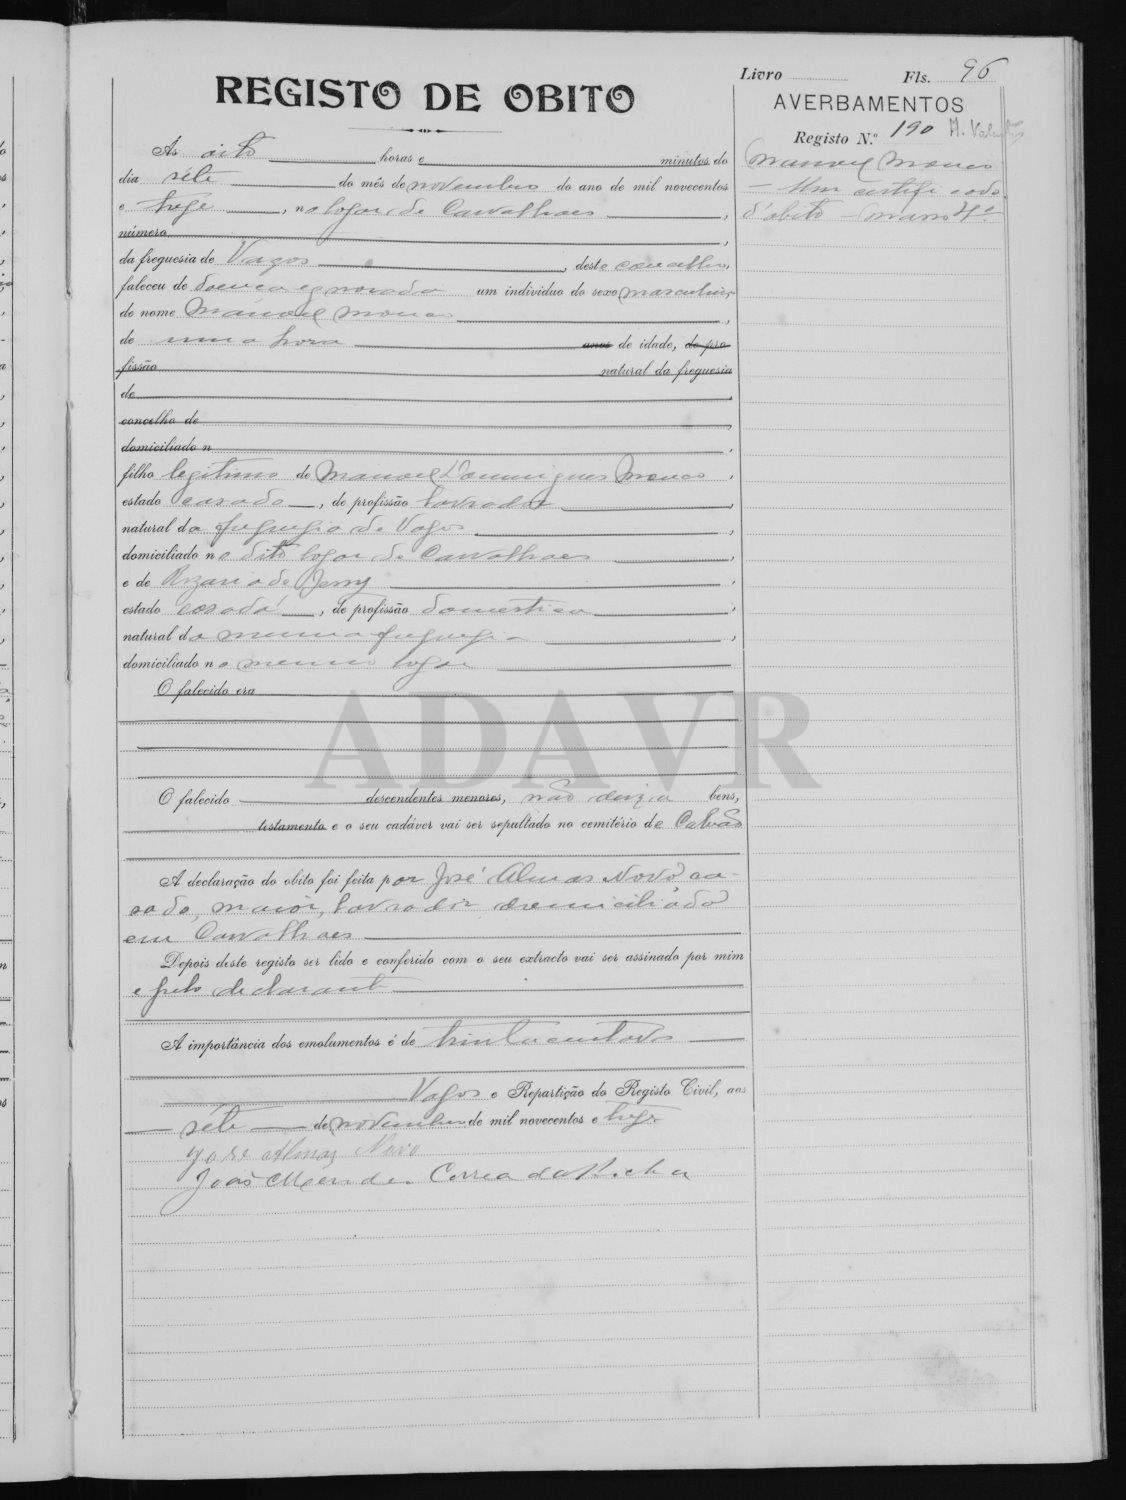 Livro Fls. 96
REGISTO DE OBITO
AVERBAMENTOS
Registo N.º 190
Manoel Monco
— Um certificado
d'obito — maço 4º
Ás oito horas e minutos do
dia séte do mês de novembro do ano de mil novecentos
e treze, no logar de Carvalhaes,
número,
da freguesia de Vagos, deste concelho,
faleceu de doença egnorada um individuo do sexo masculino,
de nome Manoel Monco,
de uma hora anos de idade, de pro
fissão natural da freguesia
de
concelho de
domiciliado n
filho legitimo de Manoel Domingues Monco,
estado casado, de profissão lavrador
natural da freguesia de Vagos,
domiciliado no dito logar de Carvalhaes,
e de Rozaria de Jesus,
estado casada, de profissão domestica,
natural da mesma freguesia,
domiciliado no mesmo logar
O falecido era
ADAVR
O falecido descendentes menores, não deixa bens,
testamento e o seu cadáver vai ser sepultado no cemitério de Calvão
A declaração do obito foi feita por José Almas Novo ca-
sado, maior, lavrador, domiciliado
em Carvalhaes
Depois deste registo ser lido e conferido com o seu extracto vai ser assinado por mim
e pelo declarante
A importância dos emolumentos é de trinta centavos
Vagos e Repartição do Registo Civil, aos
séte de novembro de mil novecentos e treze
José Almas Novo
João Mendes Correa da Rocha